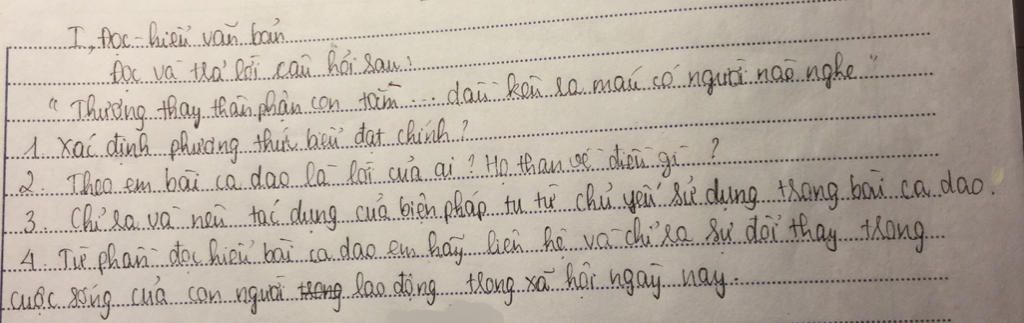 I, Đọc - hiểu văn bản
Đọc và trả lời câu hỏi sau:
" Thương thay thân phận con tằm .... dầu kêu ra máu có người nào nghe "
1. Xác định phương thức biểu đạt chính?
2. Theo em bài ca dao là lời của ai? Họ than về điều gì ?
3. Chỉ ra và nêu tác dụng của biện pháp tu từ chủ yếu sử dụng trong bài ca dao.
4. Từ phần đọc hiểu bài ca dao em hãy liên hệ và chỉ ra sự đổi thay trong
cuộc sống của con người trong lao động trong xã hội ngày nay.